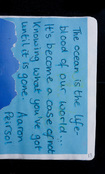 The ocean is the life-
blood of our world...
It's become a case of not
Knowing what you've got
until it is gone
Aaron
Peirsol